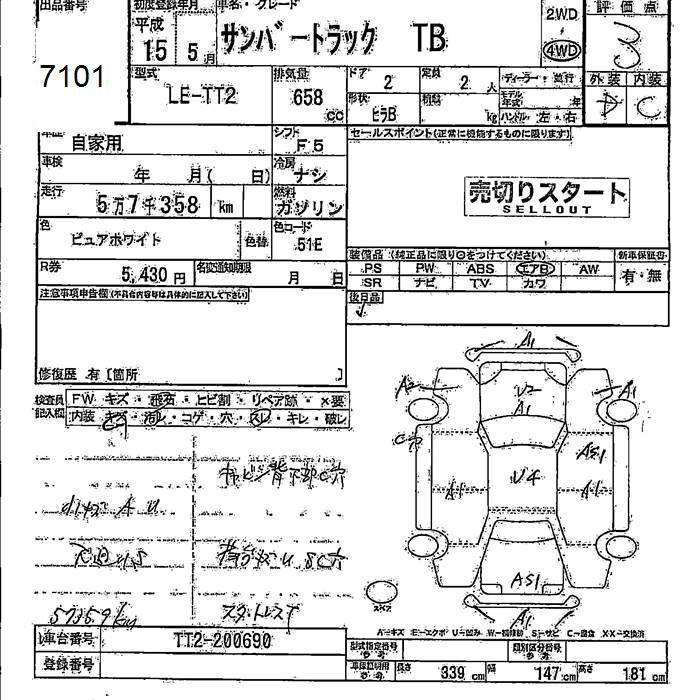 出品番号
7101
初度登録年月
平成
15 5月
車名・グレード
サンバートラック TB
2WD
4WD
評価点
外装 内装
C
型式
LE-TT2
排気量
658
cc
ドア
2
定員
2人
形状
ヒラB
積載
kg
ディーラー・並行
モデル年式
年
ハンドル 左・右
自家用
シフト
F5
車検
年 月( 日)
冷房
ナシ
走行
5万7千358 km
燃料
ガソリン
色
ピュアホワイト
色替
色コード
51E
R券
5,430円
名変通知期限
月 日
セールスポイント(正常に機能するものに限ります)
売切りスタート
SELLOUT
装備品 (純正品に限り○をつけてください)
新車保証書
PS PW ABS エアB AW
SR ナビ TV カワ
有・無
後日品
注意事項申告欄(不具合内容等は具体的に記入して下さい)
修復歴 有 [箇所 ]
検査員記入欄
FW キズ・飛石・ヒビ割・リペア跡・×要
内装 キズ・汚レ・コゲ・穴・スレ・キレ・破レ
57359km
A1
A2
U2
A1
A1
AS1
A1
U4
A1
AS1
A1
A-キズ E-エクボ U-凹み W-補修跡 S-サビ C-腐食 XX-交換済
車台番号
TT2-200690
登録番号
型式指定番号
類別区分番号
長さ 339cm 幅 147cm 高さ 181cm